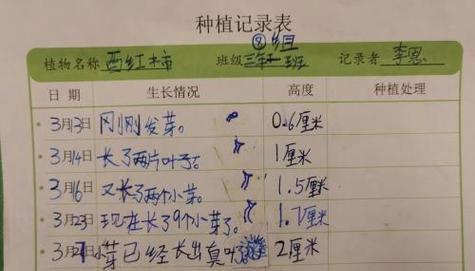 种植记录表
⑧组
植物名称 西红柿 班级 三年 班 记录者 李恩
日期 生长情况 高度 种植处理
3月13日 刚刚发芽。 0.6厘米
3月14日 长了两片叶子。 1厘米
3月16日 又长了两个小芽。 1.5厘米
3月23日 现在长了9个小芽了。 1.7厘米
3月 日 小芽已经长出真叶 2厘米